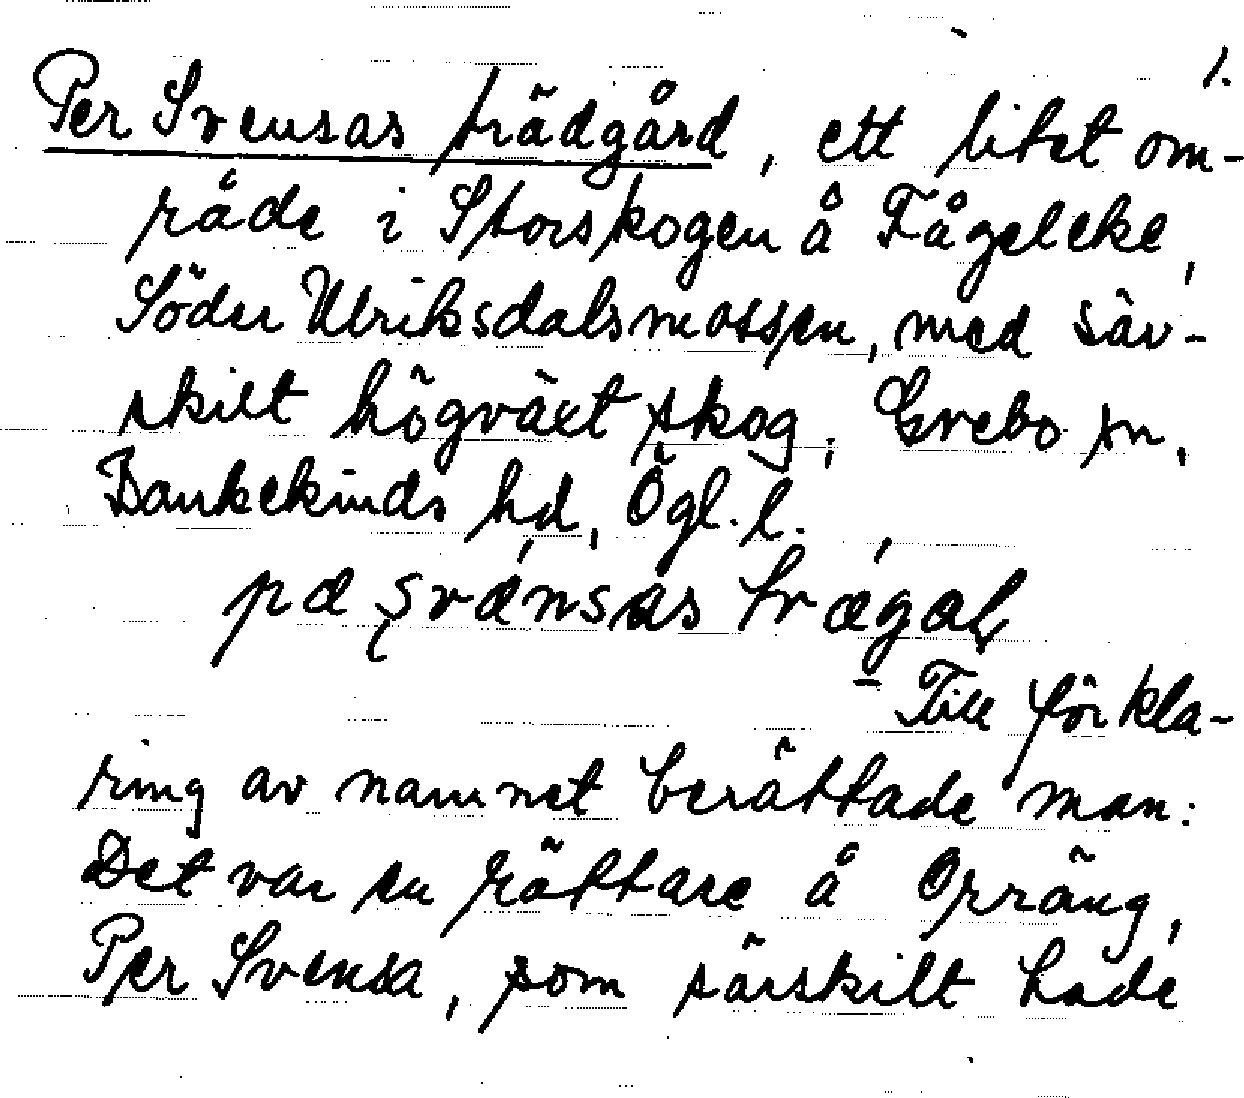 1.
Per Svensas trädgård, ett litet om-
råde i Storskogen å Fågeleke,
Söder Ulriksdalsmossen, med sär-
skilt högväxt skog; Grebo sn,
Bankekinds hd, Ögl. l.
pæ svænsas trægaḷ
– Till förkla-
ring av namnet berättade man:
Det var en rättare å Opräng,
Per Svensa, som särskilt hade